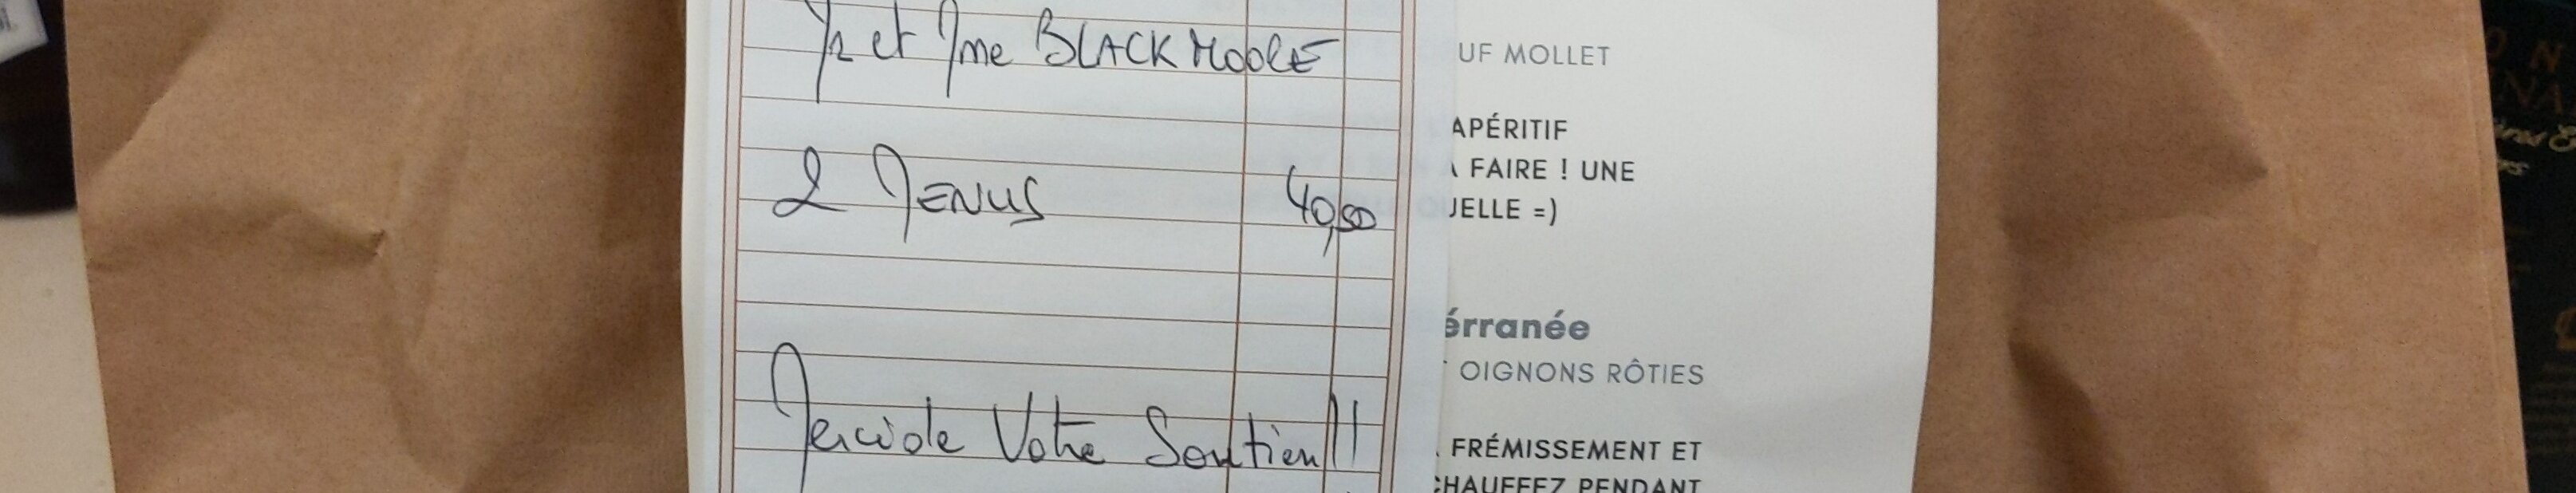 Mr et Mme BLACKMOORE
2 MENUS 40,00
Merci de Votre Soutien!!
UF MOLLET
APÉRITIF
À FAIRE ! UNE
UELLE =)
érranée
OIGNONS RÔTIES
FRÉMISSEMENT ET
CHAUFFEZ PENDANT